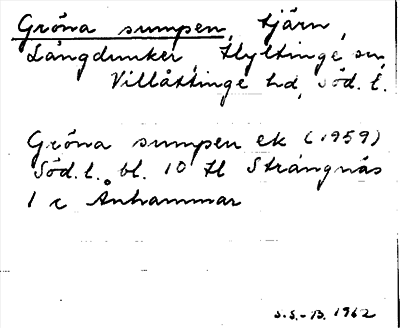 Gröna sumpen, tjärn,
Långdunker, Hyltinge sn,
Villåttinge hd, Söd. l.
Gröna sumpen ek (1959)
Söd. l. bl. 10 H Strängnäs
1 c Ånhammar
S.S.-B. 1962